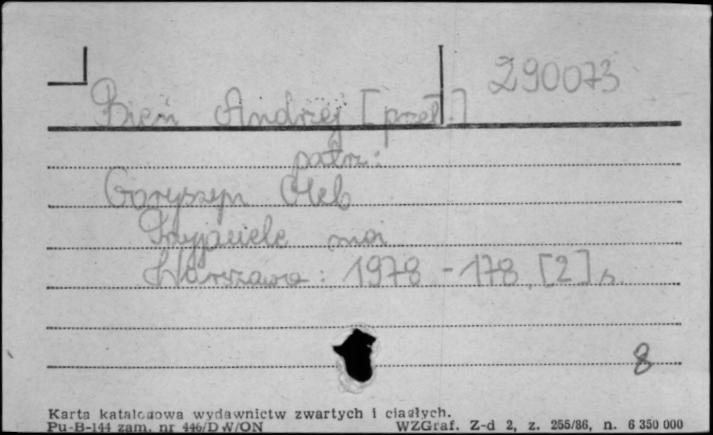 290073
Bień Andrzej [przeł.]
patrz:
Goryszyn Gleb
Przyjaciele moi
Warszawa: 1978 - 178, [2] s.
8
Karta katalogowa wydawnictw zwartych i ciągłych.
Pu-B-144 zam. nr 446/DW/ON WZGraf. Z-d 2, z. 255/86, n. 6 350 000